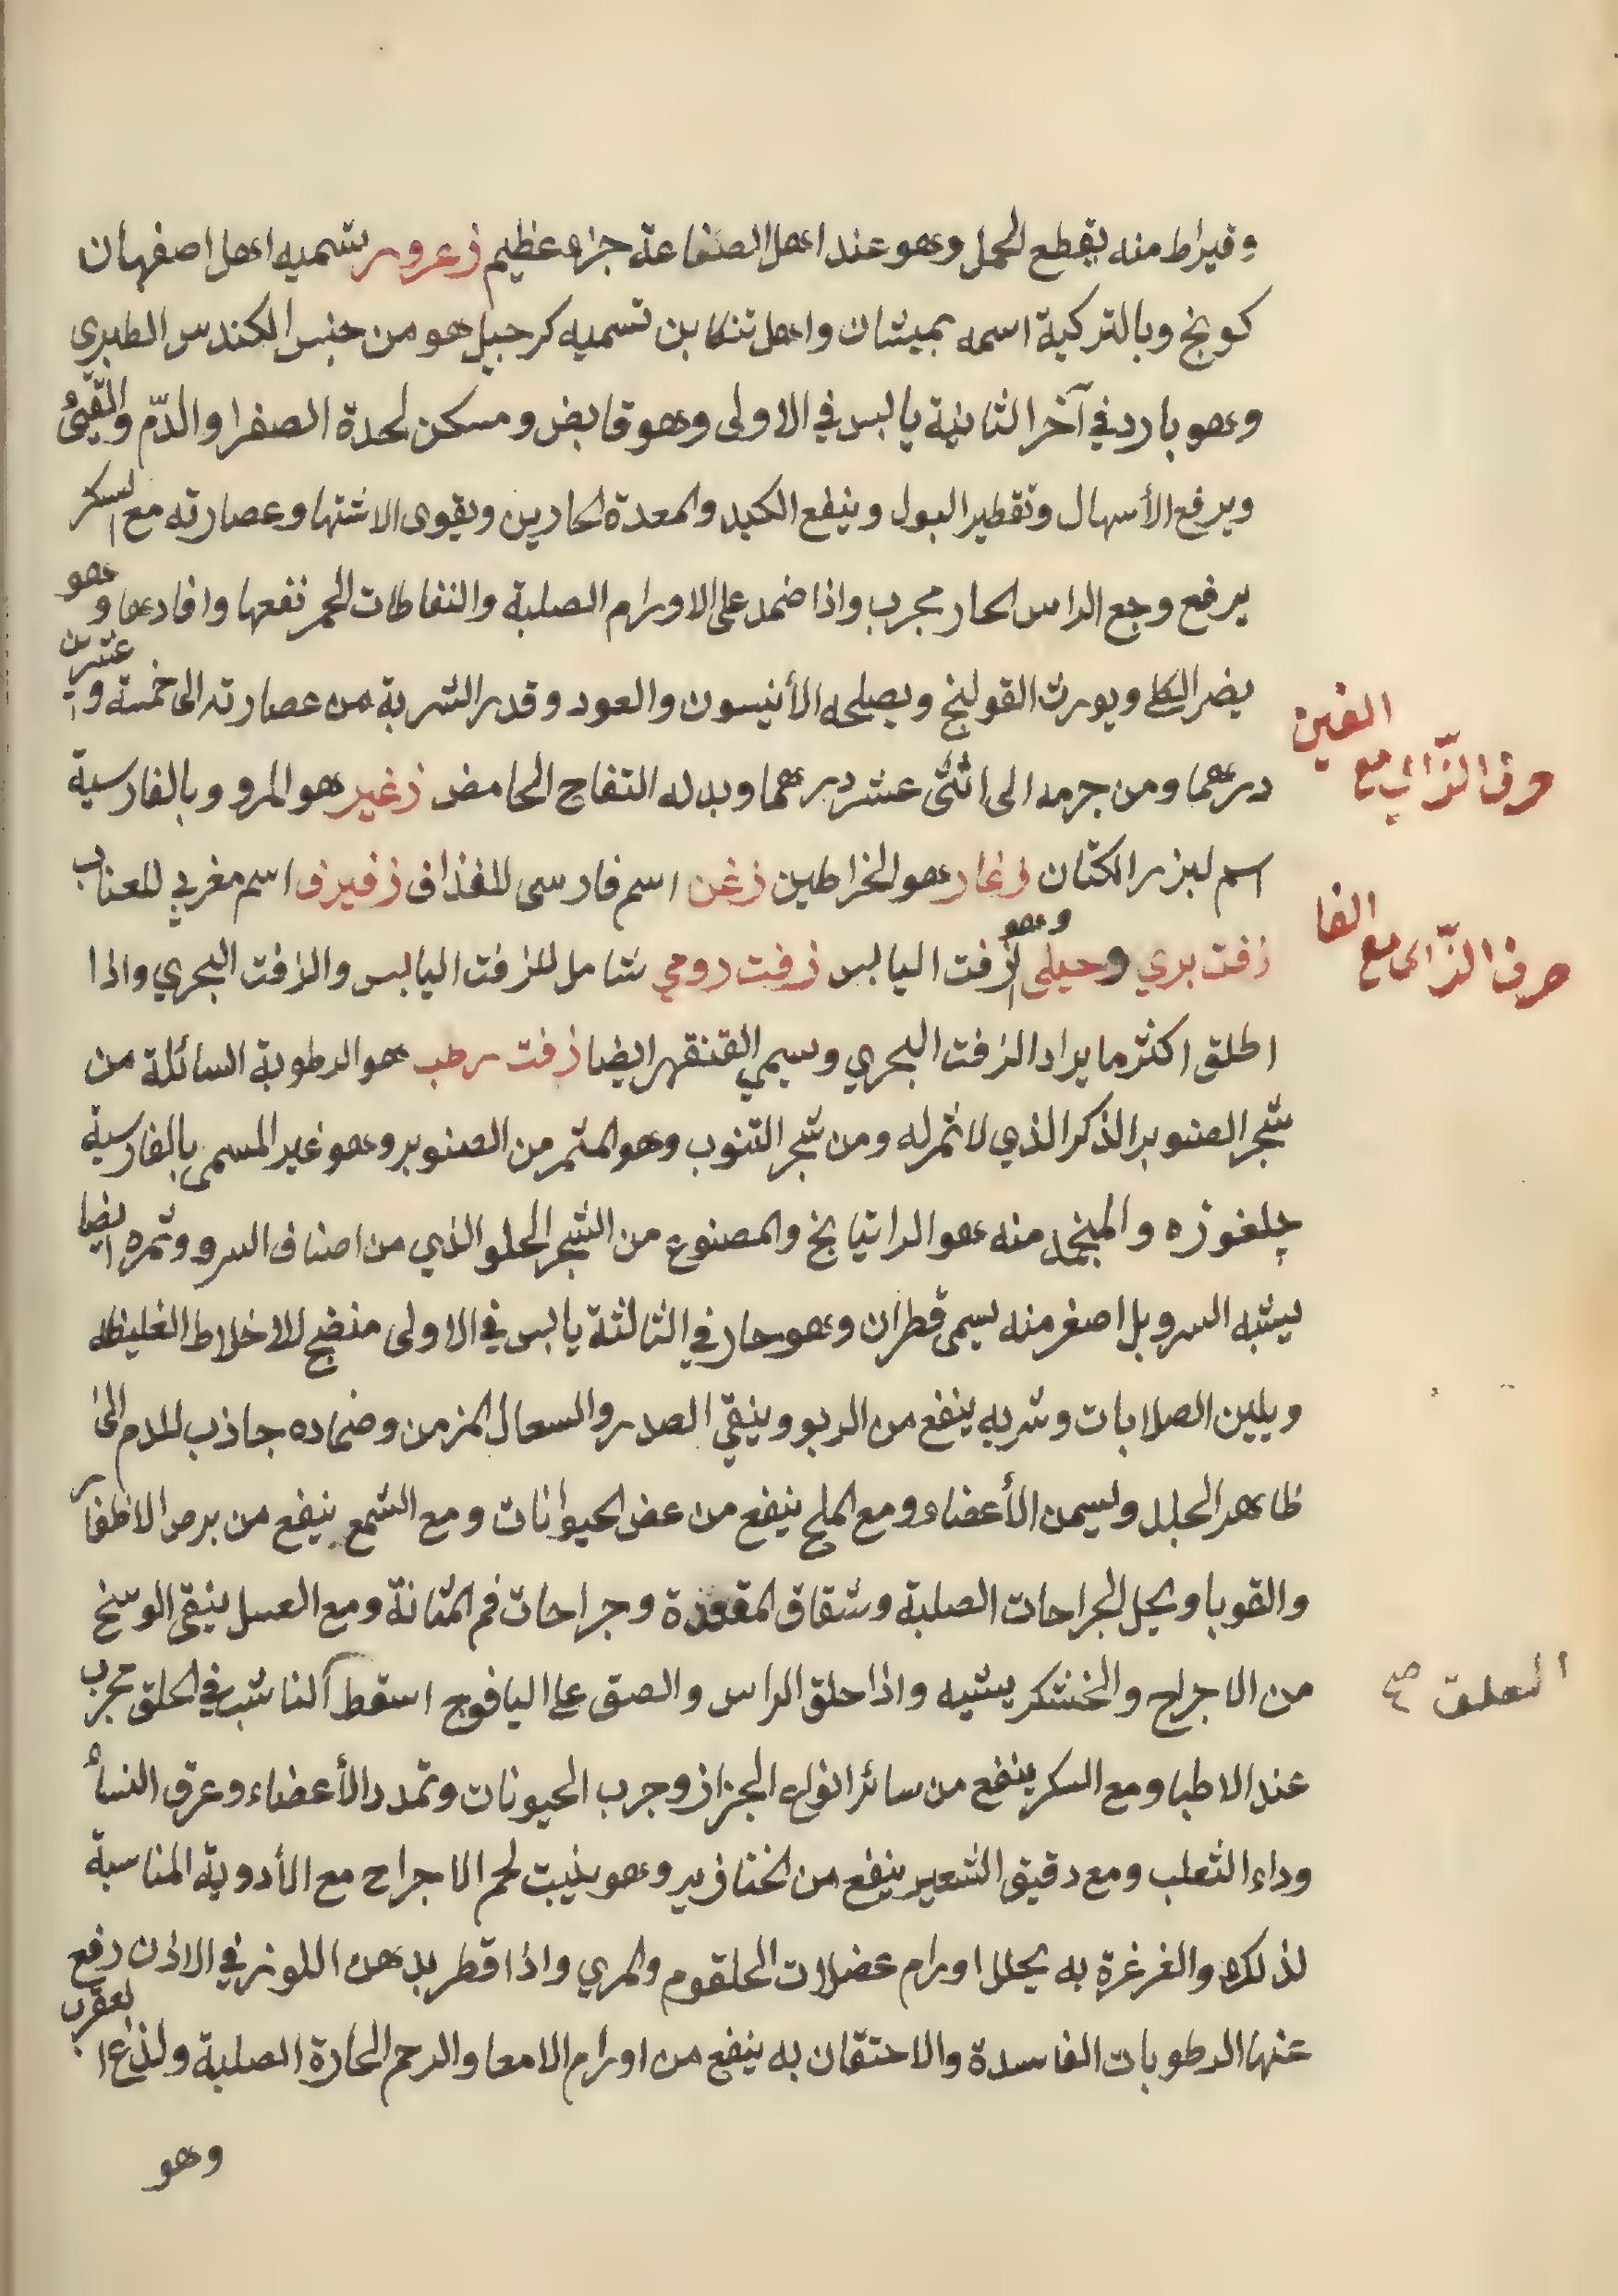 وقيراط منه يقطع الحمل وهو عند اهل الصناعة جزء عظيم زعرور يسميه اهل اصفهان
كويخ وبالتركية اسمه بميشان واهل تنكابن تسميه كرحيل هو من جنس الكندس الطبري
وهو بارد في آخر الثانية يابس في الاولى وهو قابض ومسكن لحدة الصفرا والدّم والقئ
ويرفع الأسهال وتقطير البول وينفع الكبد والمعدة الحارين ويقوى الاشتها وعصارته مع السكر
يرفع وجع الراس الحار مجرب واذا ضمد على الاورام الصلبة والنفاطات الحمر نفعها وافادها وهو
يضر الكلى ويورث القولنج ويصلحه الأنيسون والعود وقدر الشربة من عصارته الى خمسة وعشرين
درهما ومن جرمه الى اثنى عشر درهما وبدله التفاح الحامض زغير هو المرو وبالفارسية
حرف الزّاي مع الغين
اسم لبزر الكتان زغار هو الخراطين زغن اسم فارسى للغذاف زفيزف اسم مغربي للعناب
زفت بري وجبلى وهو الزفت اليابس زفت رومي شامل للزفت اليابس والزفت البحري واذا
حرف الزّاى مع الفا
اطلق اكثر ما يراد الزفت البحري ويسمي القنقهر ايضا زفت رطب هو الرطوبة السائلة من
شجر الصنوبر الذكر الذي لا ثمر له ومن شجر التنوب وهو المثمر من الصنوبر وهو غير المسمى بالفارسية
چلغوزه والمنجمد منه هو الراتيانج والمصنوع من الشجر الحلو الذي من اصناف السرو وثمره ايضا
يشبه السرو بل اصغر منه يسمى قطران وهو حار في الثالثة يابس في الاولى منضج للاخلاط الغليظه
ويلين الصلابات وشربه ينفع من الربو وينقي الصدر والسعال المزمن وضماده جاذب للدم الى
ظاهر الجلد ويسمن الأعضاء ومع الملح ينفع من عض الحيوانات ومع الشمع ينفع من برص الاظفار
والقوبا ويحلل الجراحات الصلبة وشقاق المقعدة وجراحات فم المثانة ومع العسل ينقى الوسخ
من الاجراح والخشكريشيه واذا حلق الراس والصق على اليافوج اسقط الناشب في الحلق مجرب
العلق صح
عند الاطبا ومع السكر ينفع من سائر انواع الجزاز وجرب الحيونات وتمدد الأعضاء وعرق النسا
وداء الثعلب ومع دقيق الشعير ينفع من الخنازير وهو ينبت لحم الاجراح مع الأدوية المناسبة
لذلك والغرغرة به يحلل اورام عضلات الحلقوم والمري واذا قطر بدهن اللوز في الاذن رفع
عنها الرطوبات الفاسدة والاحتقان به ينفع من اورام الامعا والرحم الحارة الصلبة ولذغ العقرب
وهو